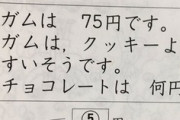 ガムは 75円です。
ガムは,クッキーよ
すいそうです。
チョコレートは 何円
⑤